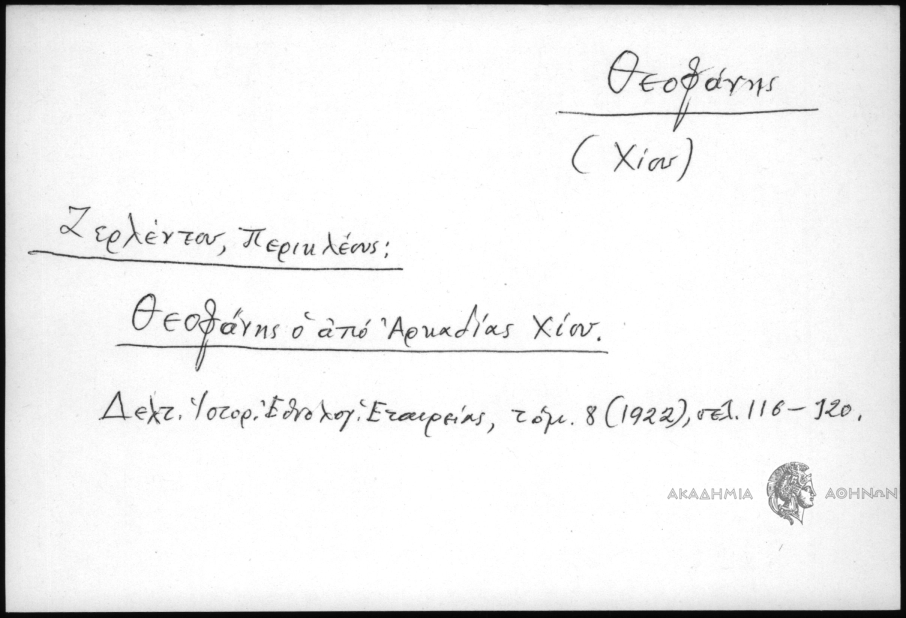 Θεοφάνης
(Χίου)
Ζερλέντου, Περικλέους:
Θεοφάνης ὁ ἀπό Ἀρκαδίας Χίου.
Δελτ. Ἱστορ. Ἐθνολογ. Ἑταιρείας, τόμ. 8 (1922), σελ. 116-120.
ΑΚΑΔΗΜΙΑ ΑΘΗΝΩΝ